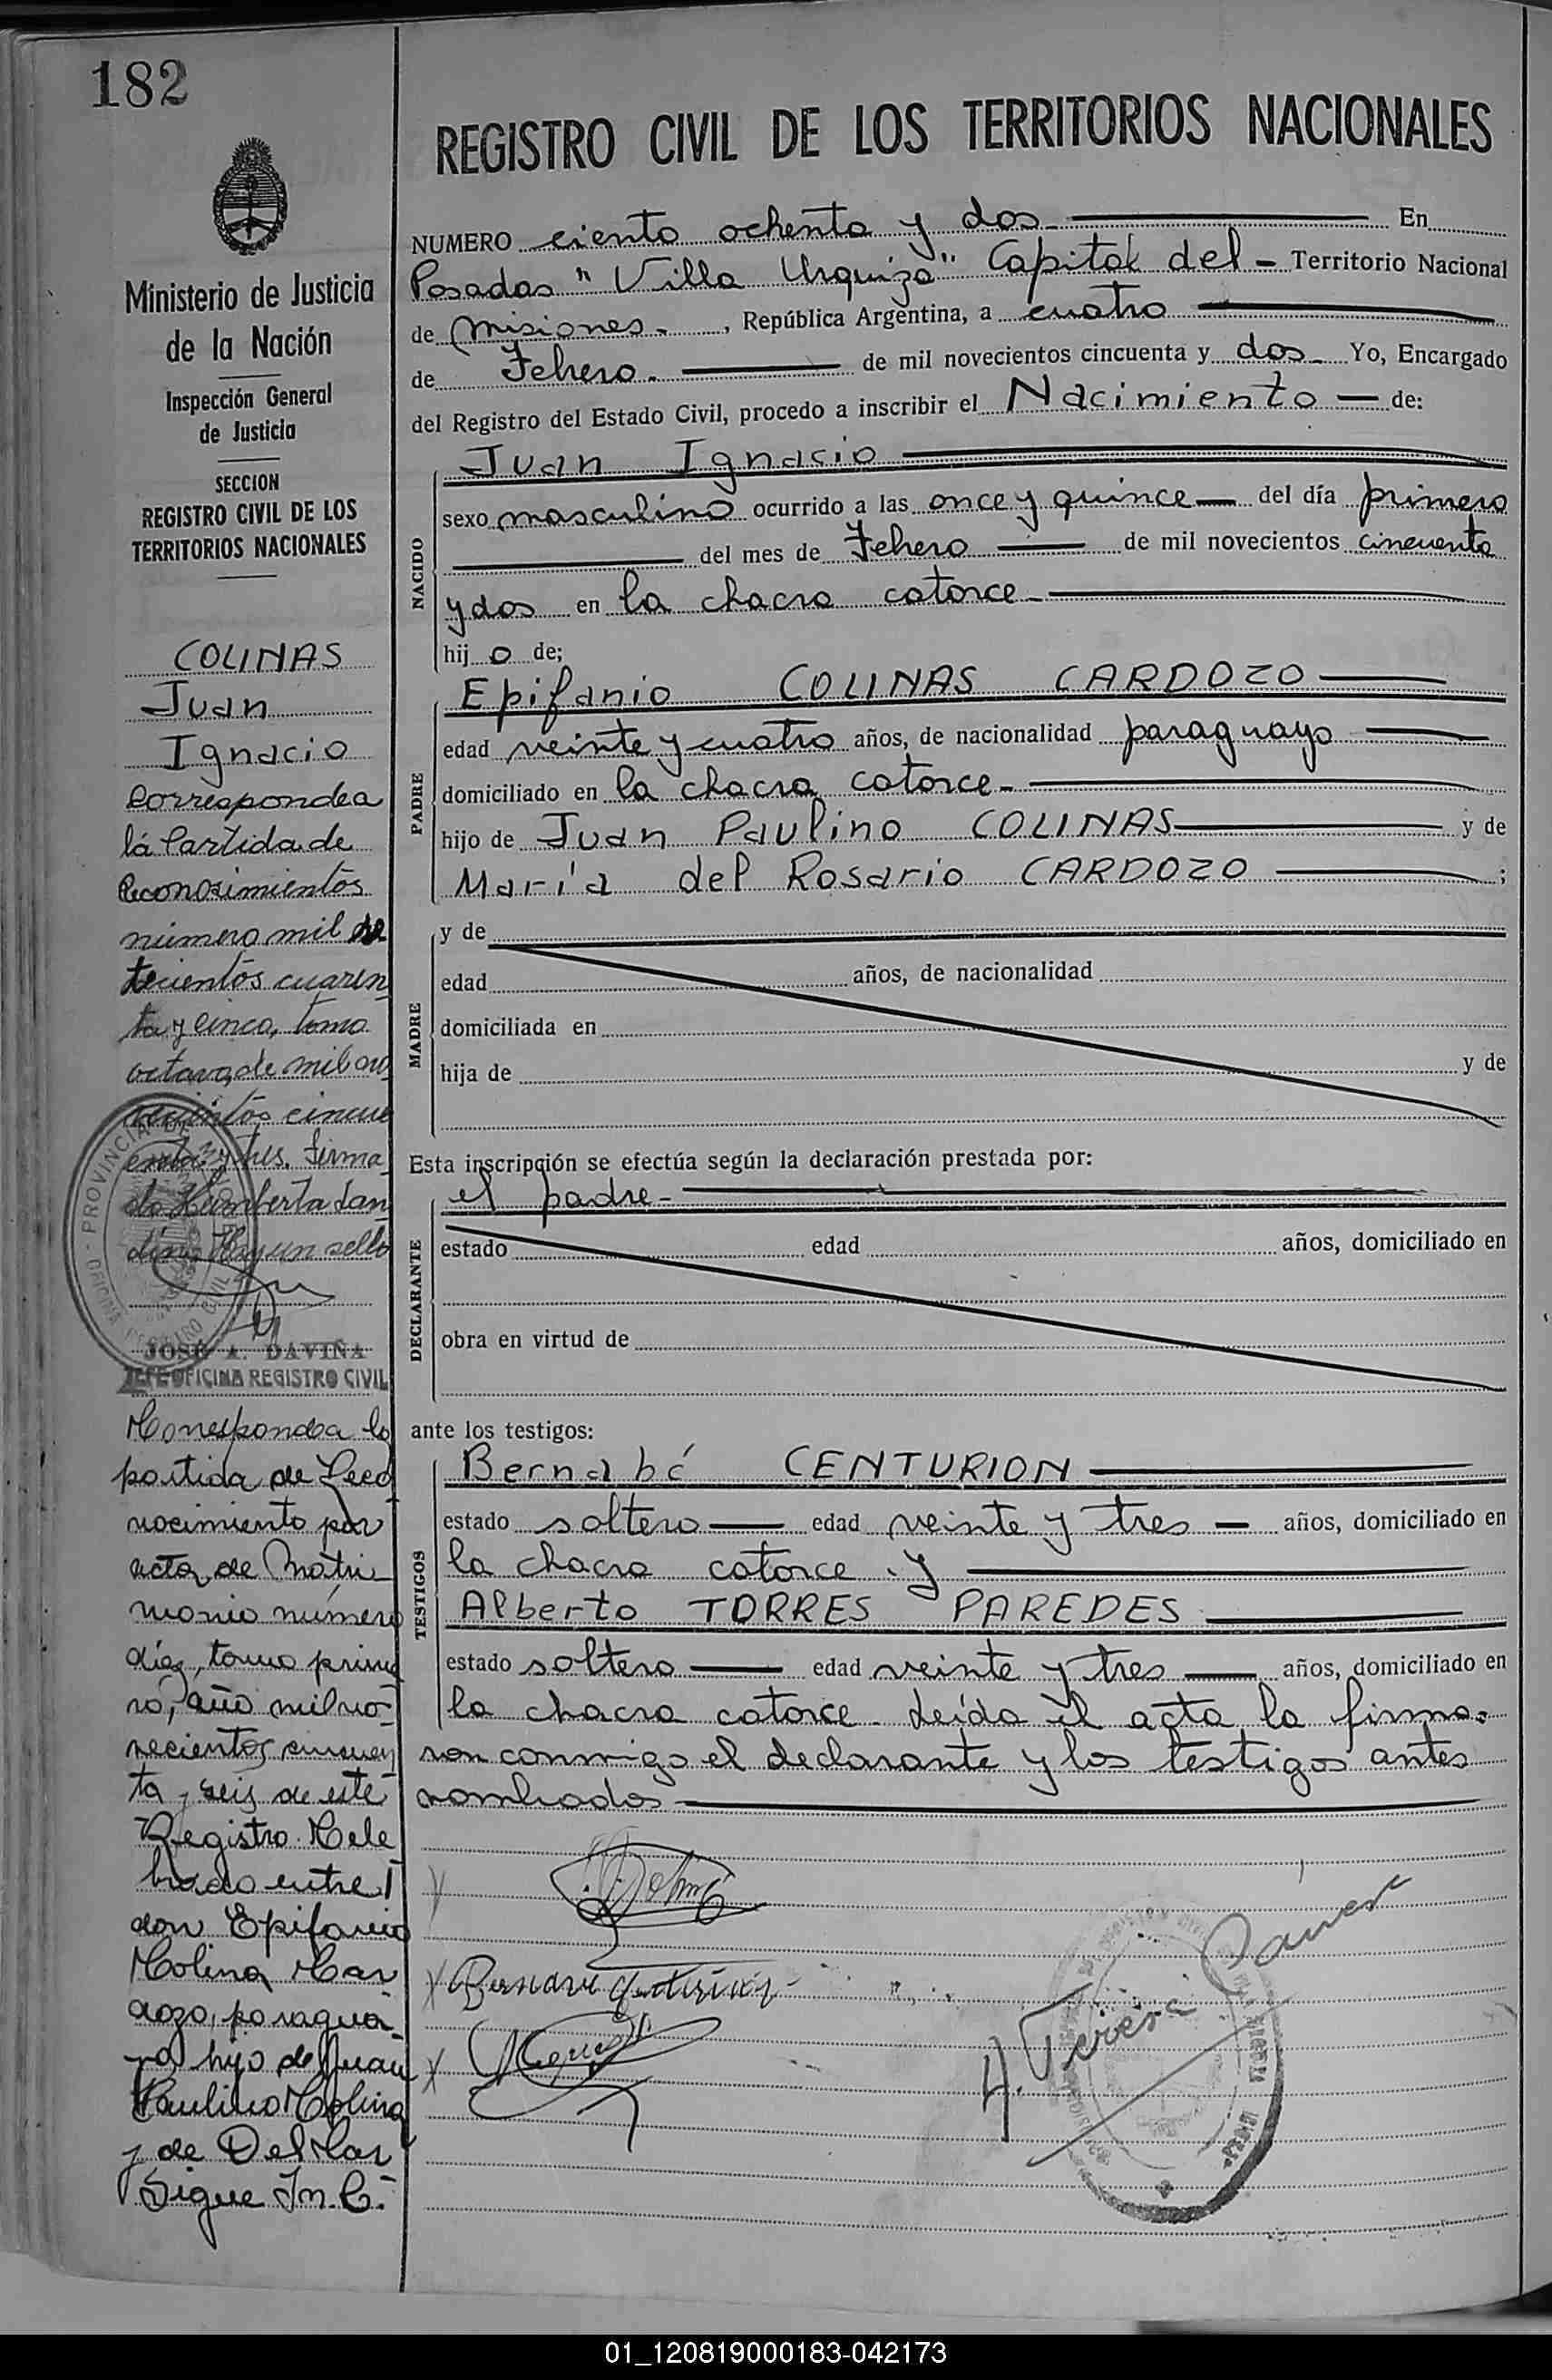 182
REGISTRO CIVIL DE LOS TERRITORIOS NACIONALES
Ministerio de Justicia
de la Nación
Inspección General
de Justicia
SECCION
REGISTRO CIVIL DE LOS
TERRITORIOS NACIONALES
COLINAS
Juan
Ignacio
Corresponde a
la Partida de
Reconosimientos
número mil
tecientos cuaren
ta y cinco, tomo
octavo, de mil no
vecientos cincu
enta y tres. Firma
do Humberto Lan
din. Hay un sello
PROVINCIA DE
OFICINA REGISTRO CIVIL
JOSÉ A. DAVIÑA
JEFE OFICINA REGISTRO CIVIL
Corresponde a la
partida de Reco
nocimiento por
acta de Matri
monio número
diez, tomo prime
ro, año mil no-
vecientos cincuen
ta y seis de este
Registro. Cele
brado entre
don Epifanio
Colina Car
dozo, paragua-
yo hijo de Juan
Paulino Colina
y de Del Car
Sigue In. C.
NUMERO ciento ochenta y dos En
Posadas "Villa Urquiza" Capital del - Territorio Nacional
de Misiones - , República Argentina, a cuatro
de Febrero. de mil novecientos cincuenta y dos Yo, Encargado
del Registro del Estado Civil, procedo a inscribir el Nacimiento — de:
NACIDO
Juan Ignacio
sexo masculino ocurrido a las once y quince — del día primero
del mes de Febrero — de mil novecientos cincuenta
y dos en la chacra catorce
hij o de;
PADRE
Epifanio COLINAS CARDOZO
edad veinte y cuatro años, de nacionalidad paraguayo
domiciliado en la chacra catorce
hijo de Juan Paulino COLINAS y de
María del Rosario CARDOZO ;
MADRE
y de
edad años, de nacionalidad
domiciliada en
hija de y de
Esta inscripción se efectúa según la declaración prestada por:
DECLARANTE
el padre
estado edad años, domiciliado en
obra en virtud de
ante los testigos:
TESTIGOS
Bernabé CENTURION
estado soltero — edad veinte y tres — años, domiciliado en
la chacra catorce . y
Alberto TORRES PAREDES
estado soltero — edad veinte y tres — años, domiciliado en
la chacra catorce. Leída el acta, la firma-
ron conmigo el declarante y los testigos antes
nombrados
01_120819000183-042173